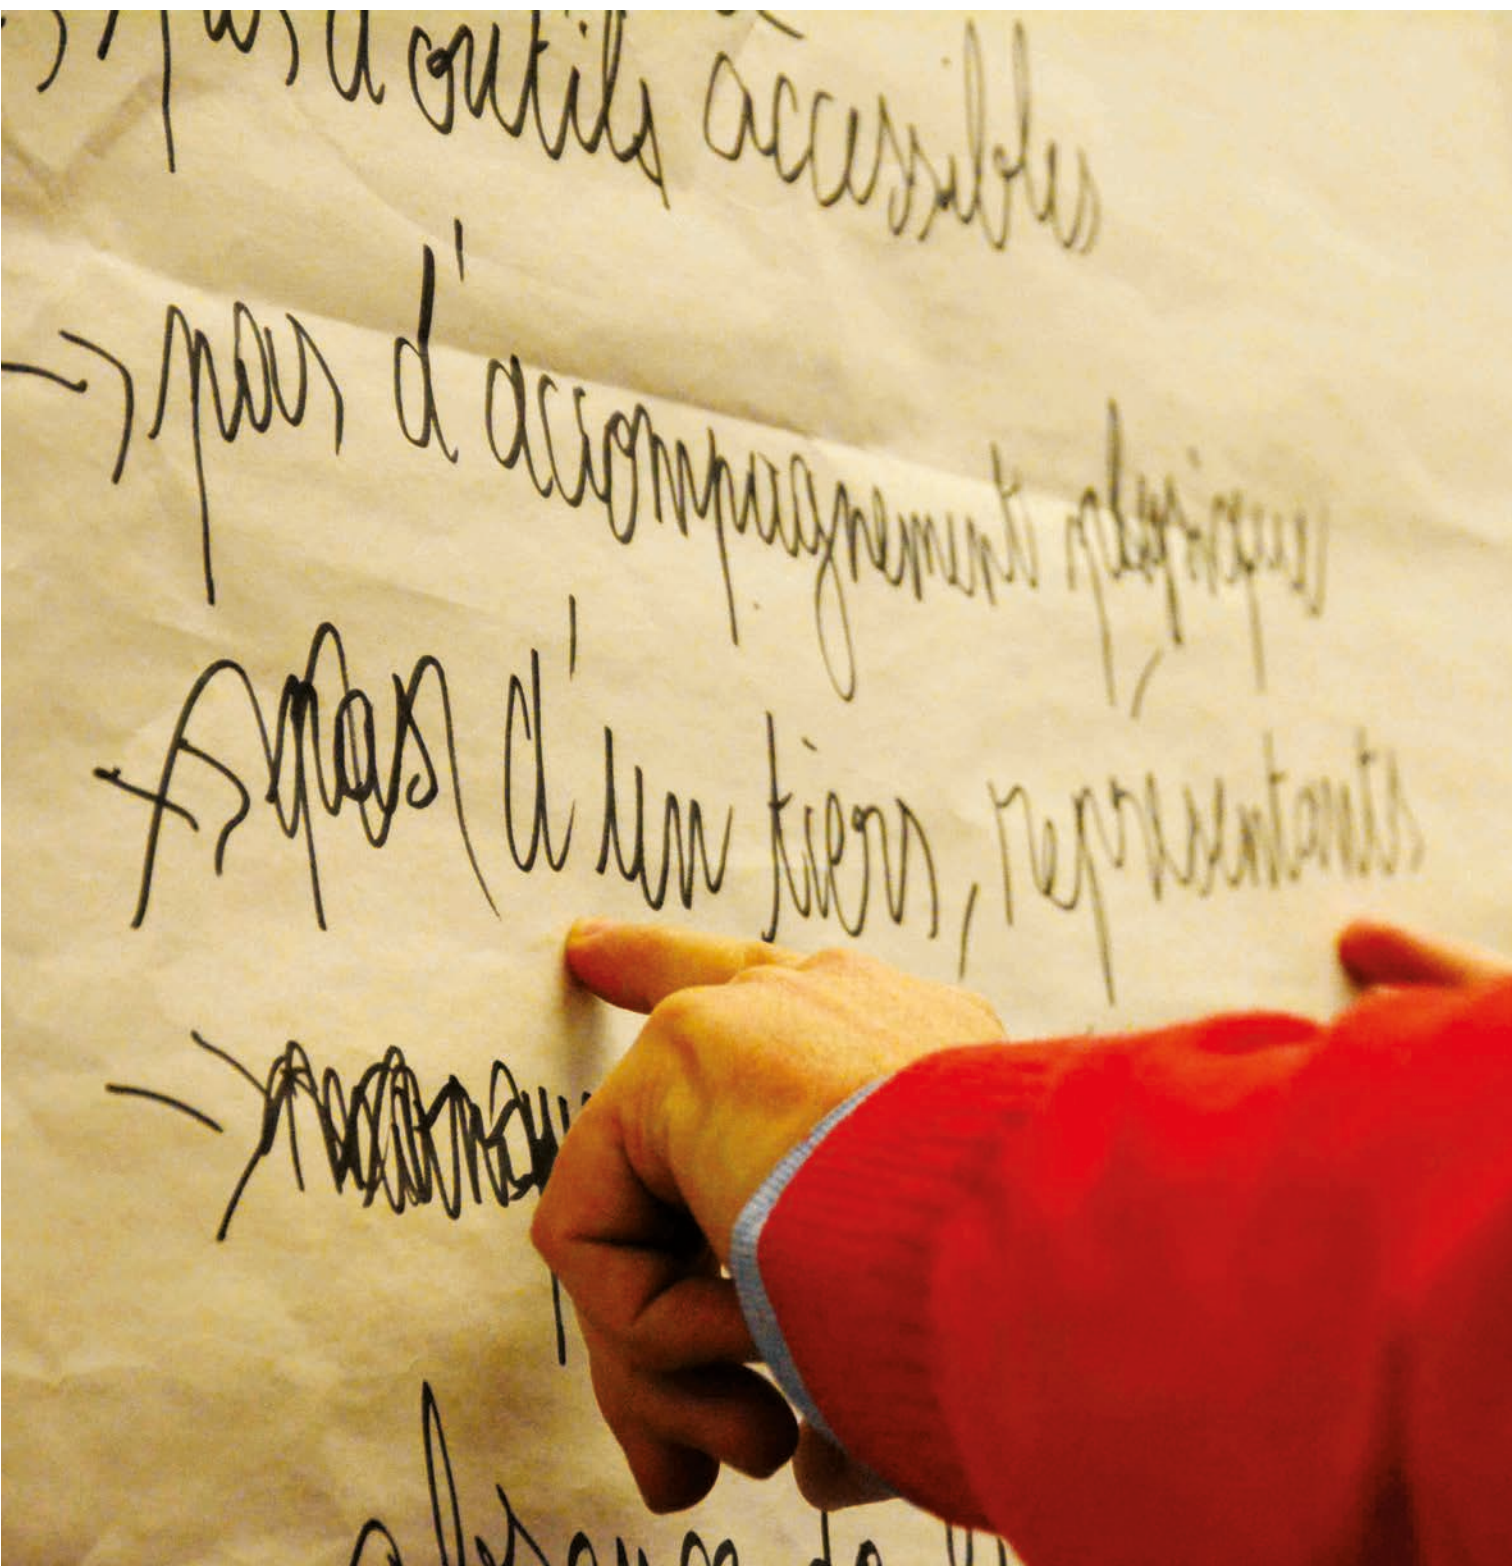 → pas d'outils accessibles
→ pas d'accompagnement physique
→ pas d'un tiers, représentants
absence de